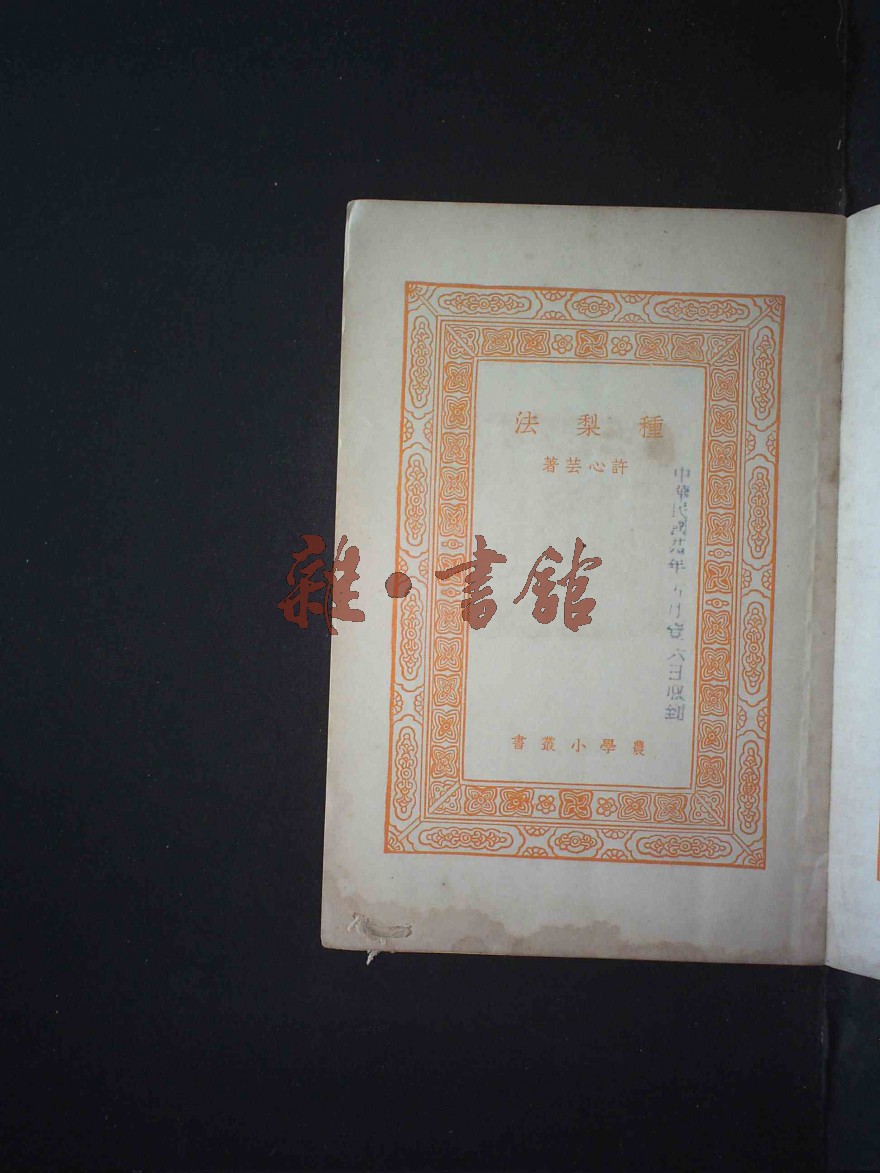 種梨法
許心芸著
中華民國 年 月 六日收到
農學小叢書
雜·書館